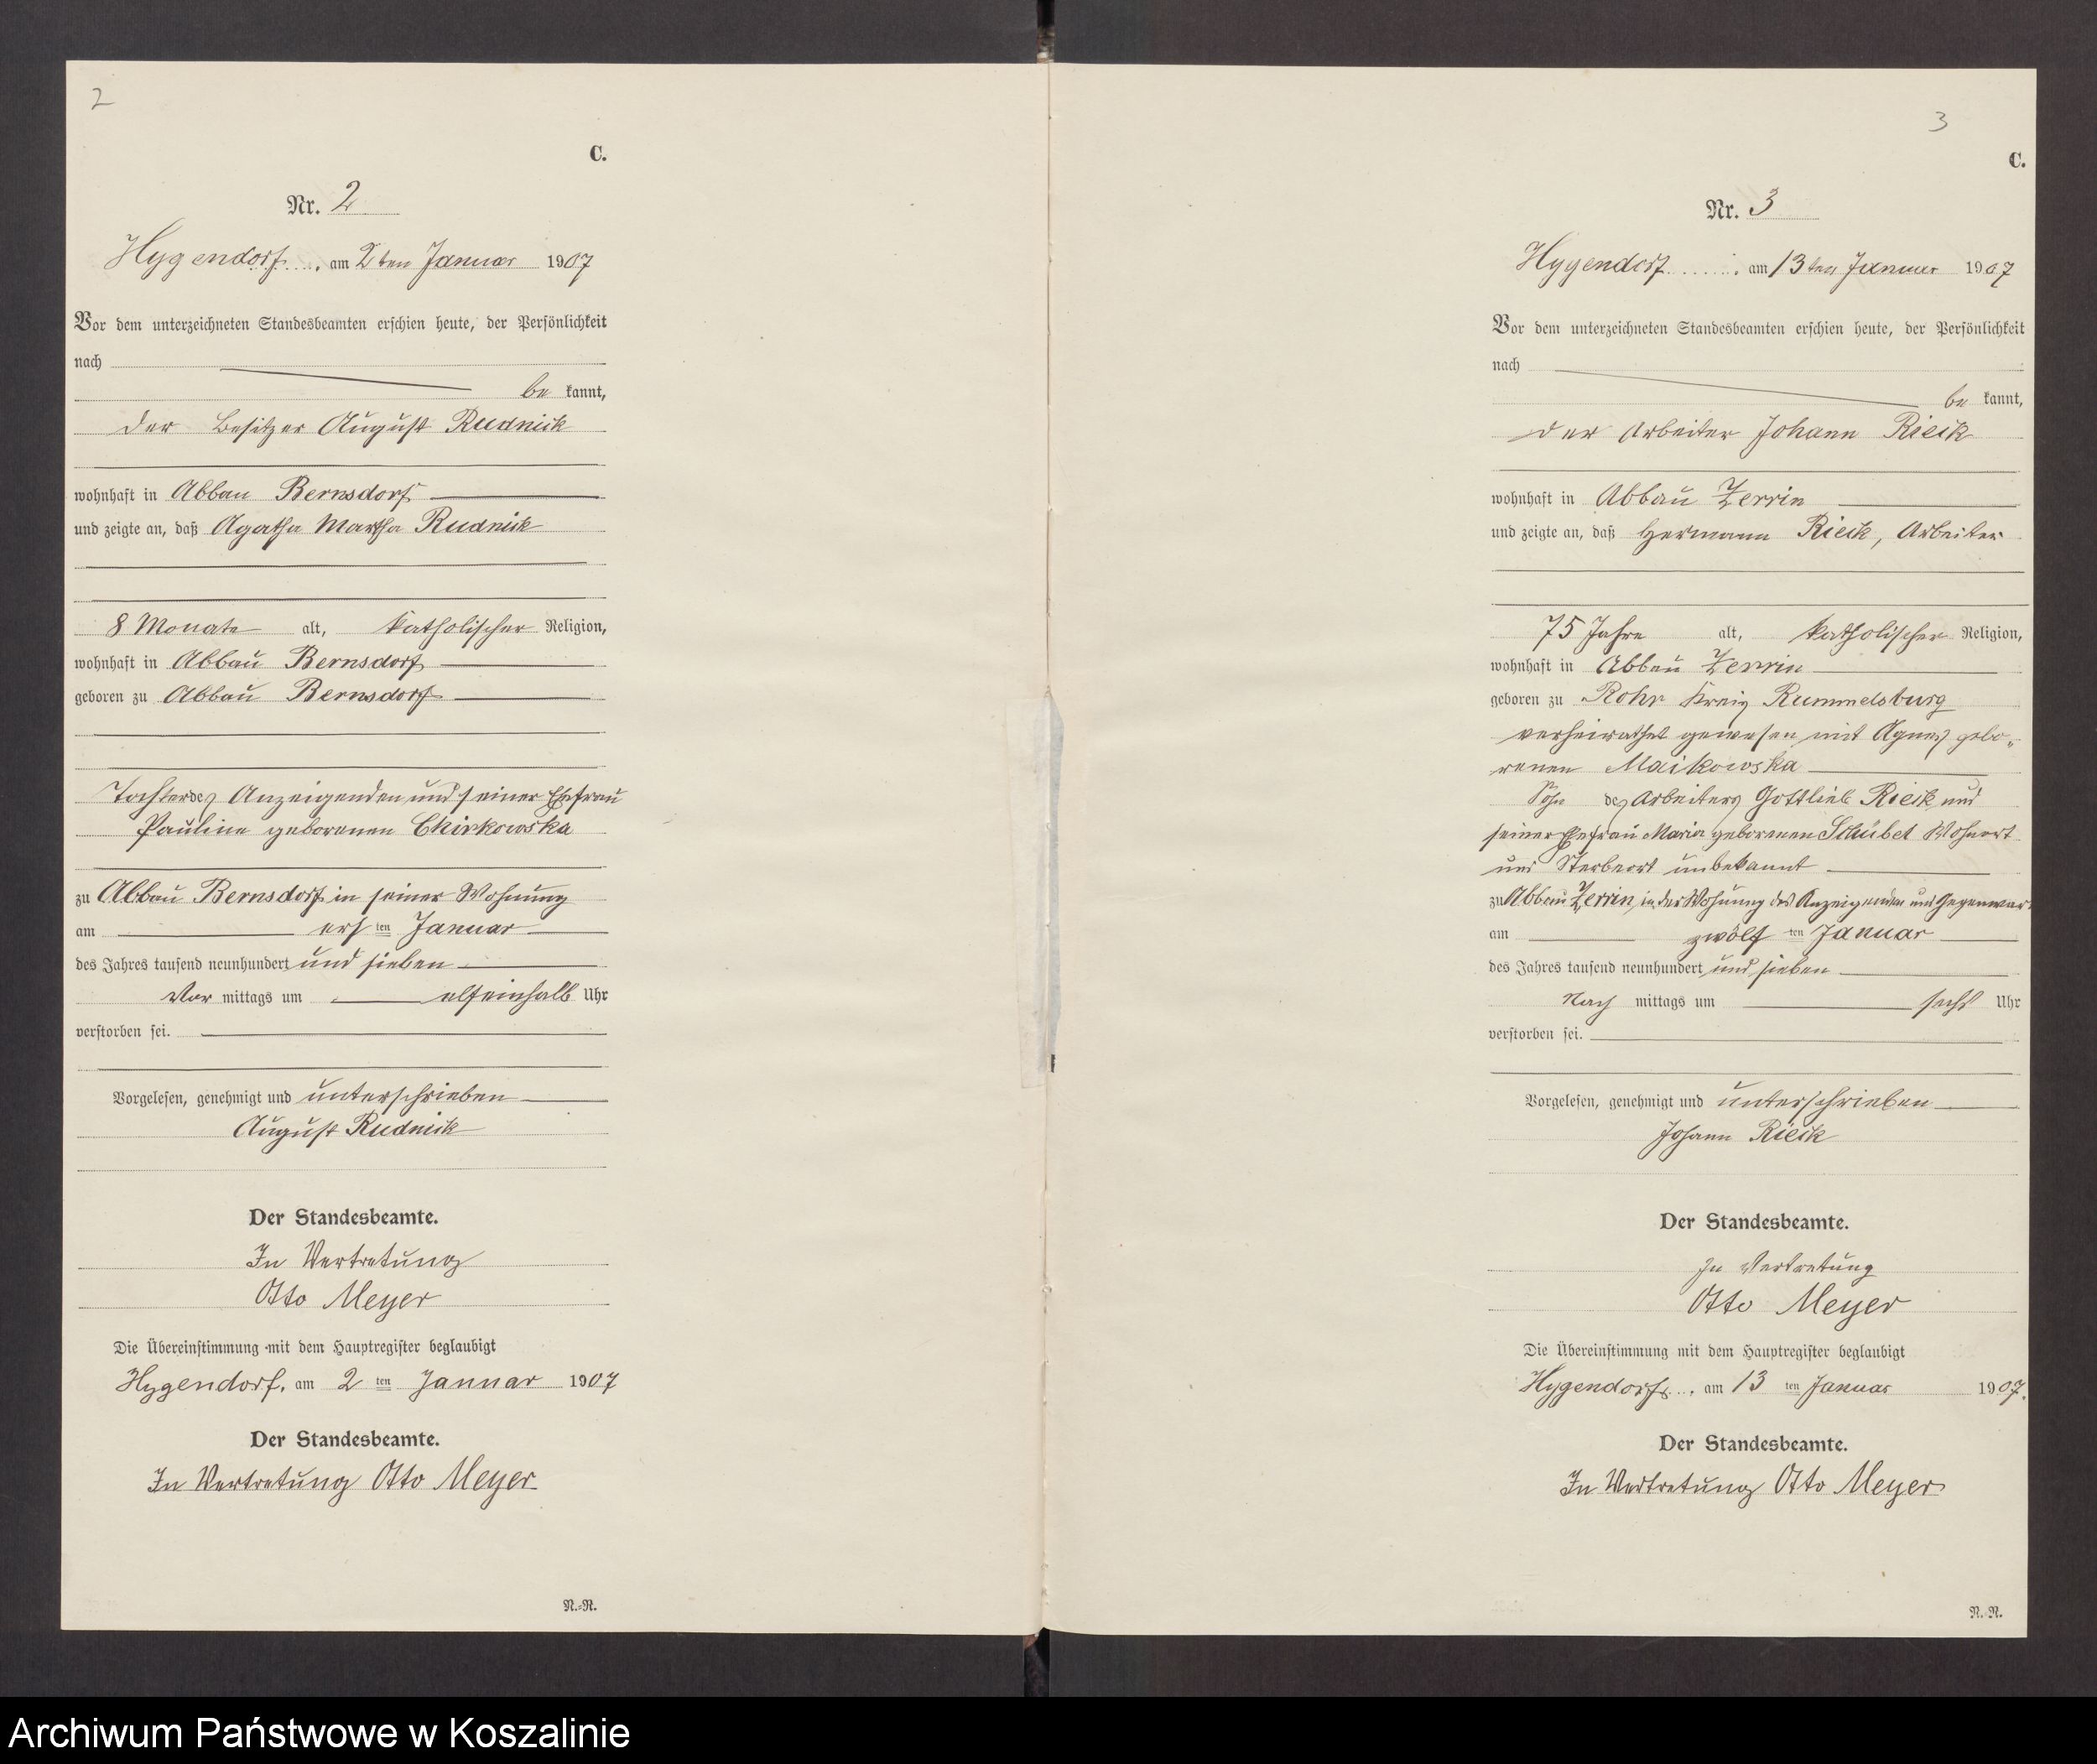 2
C.
Nr. 2
Hygendorf, am 2ten Januar 1907
Vor dem unterzeichneten Standesbeamten erschien heute, der Persönlichkeit
nach
be kannt,
der Besitzer August Rudnick
wohnhaft in Abbau Bernsdorf
und zeigte an, daß Agatha Martha Rudnick
8 Monate alt, katholischer Religion,
wohnhaft in Abbau Bernsdorf
geboren zu Abbau Bernsdorf
Tochter des Anzeigenden und seiner Ehefrau
Pauline geborenen Chirkowska
zu Abbau Bernsdorf in seiner Wohnung
am ersten Januar
des Jahres tausend neunhundert und sieben
Vor mittags um elfeinhalb Uhr
verstorben sei.
Vorgelesen, genehmigt und unterschrieben
August Rudnick
Der Standesbeamte.
In Vertretung
Otto Meyer
Die Übereinstimmung mit dem Hauptregister beglaubigt
Hygendorf, am 2 ten Januar 1907
Der Standesbeamte.
In Vertretung Otto Meyer
N.-R.
3
C.
Nr. 3
Hygendorf, am 13ten Januar 1907
Vor dem unterzeichneten Standesbeamten erschien heute, der Persönlichkeit
nach
be kannt,
der Arbeiter Johann Rieck
wohnhaft in Abbau Zerrin
und zeigte an, daß Hermann Rieck, Arbeiter
75 Jahre alt, katholischer Religion,
wohnhaft in Abbau Zerrin
geboren zu Rohr Kreis Rummelsburg
verheirathet gewesen mit Agnes gebo„
renen Maikowska
Sohn des Arbeiters Gottlieb Rieck und
seiner Ehefrau Maria geborenen Schübet Wohnort
und Sterbeort unbekannt
zu Abbau Zerrin, in der Wohnung des Anzeigenden und Gegenwart
am zwölf ten Januar
des Jahres tausend neunhundert und sieben
Nach mittags um sechs Uhr
verstorben sei.
Vorgelesen, genehmigt und unterschrieben
Johann Rieck
Der Standesbeamte.
In Vertretung
Otto Meyer
Die Übereinstimmung mit dem Hauptregister beglaubigt
Hygendorf, am 13 ten Januar 1907.
Der Standesbeamte.
In Vertretung Otto Meyer
N.-R.
Archiwum Państwowe w Koszalinie